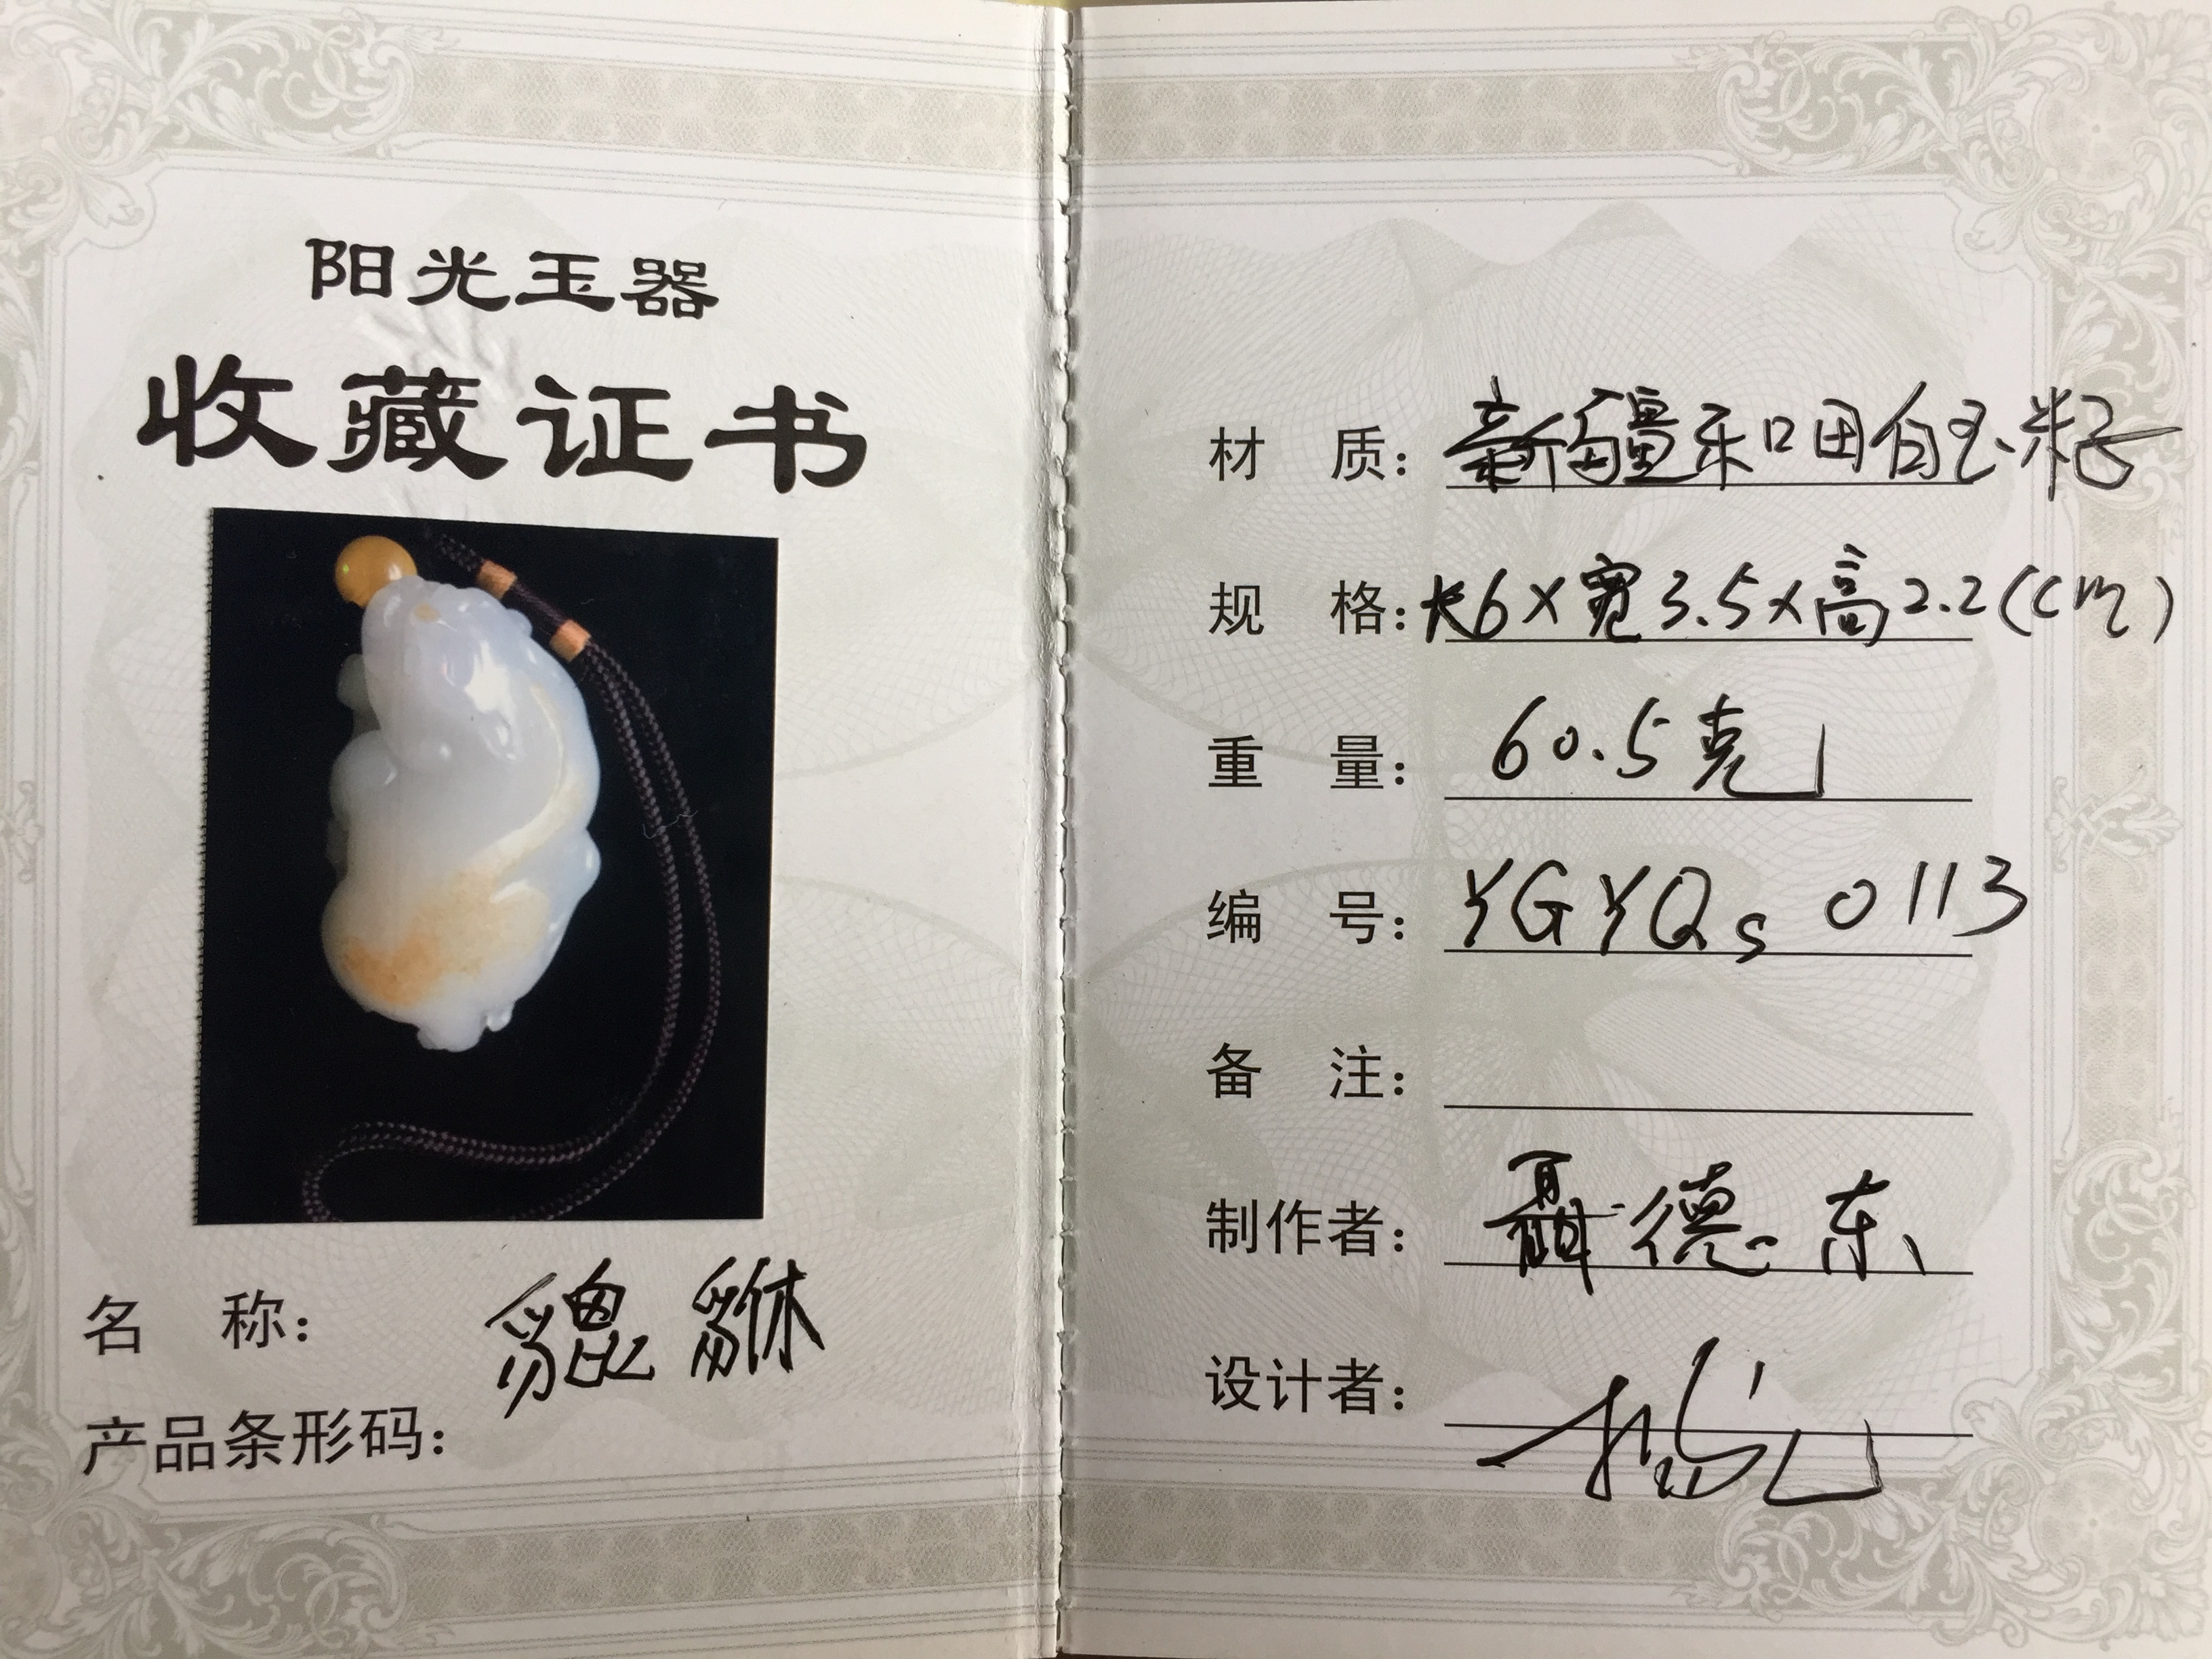 阳光玉器
收藏证书
名 称： 貔貅
产品条形码：
材 质： 新疆和田白玉籽
规 格： 长6×宽3.5×高2.2(cm)
重 量： 60.5克
编 号： YGYQs 0113
备 注：
制作者： 聶德东
设计者：